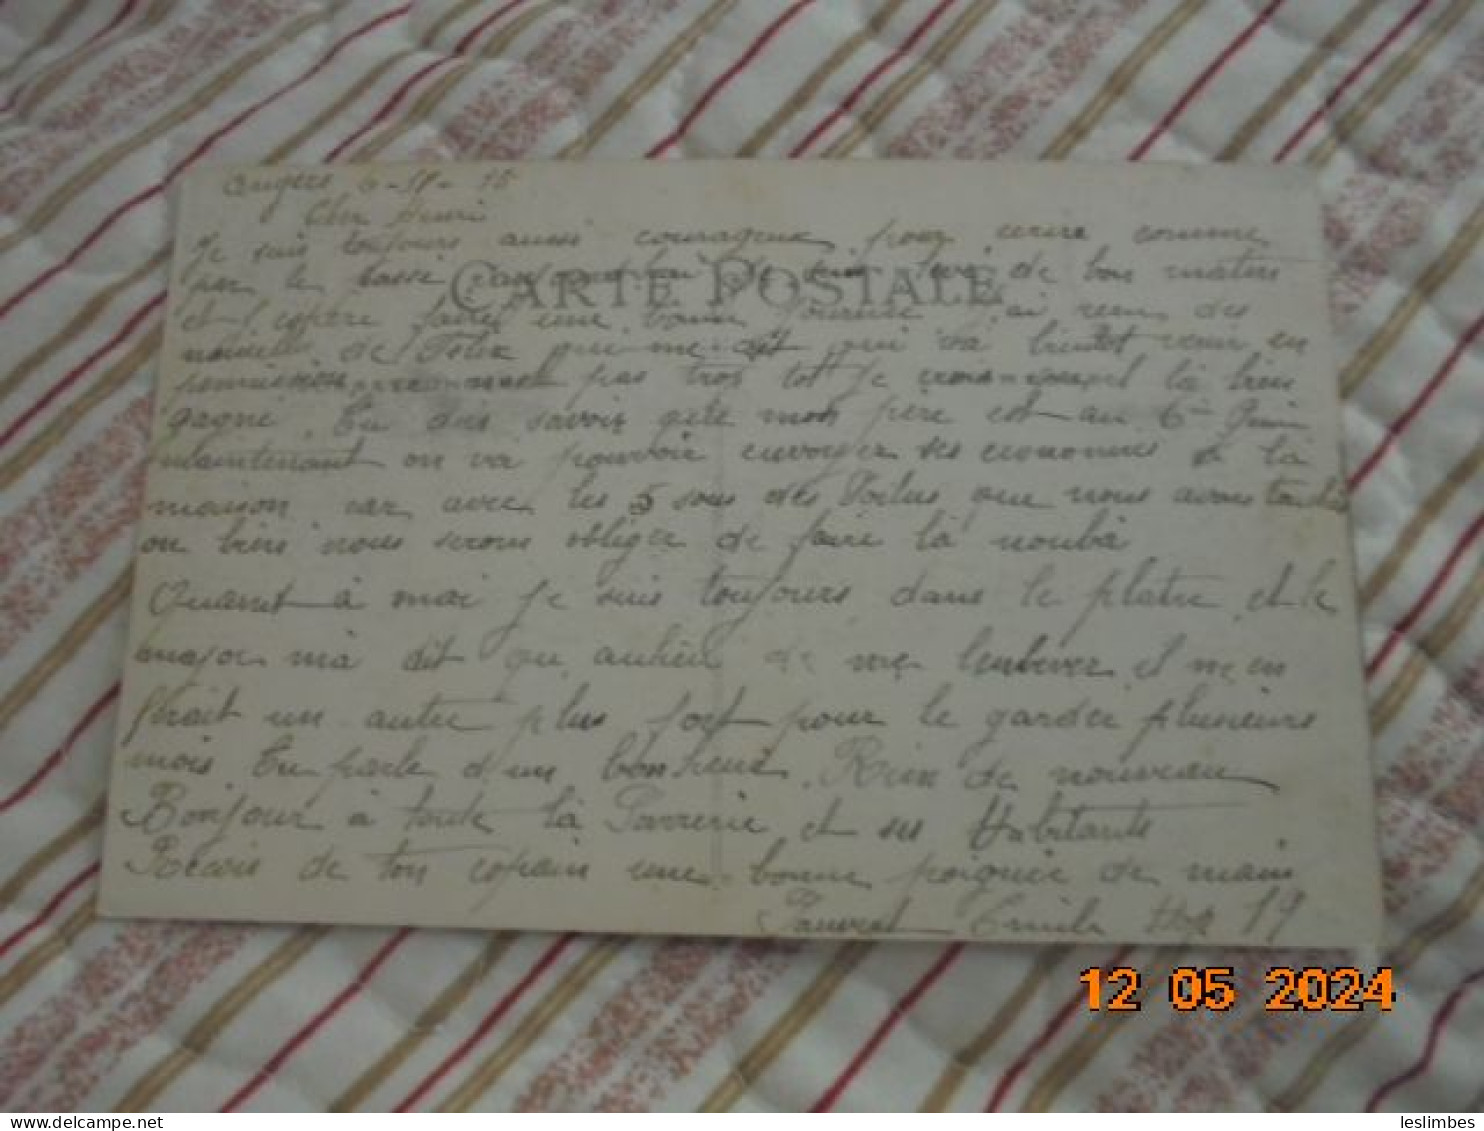 Angers
Cher Henri
Je suis toujours aussi courageux pour ecrire comme
par le passé de bon matin
CARTE POSTALE
et j'espère faire une bonne journée j'ai recu des
nouvelle de Félix qui me dit qui va bientot venir en
permission pas trop tot Je crois la bien
gagné. Tu dois savoir que mon père est au 6
maintenant on va pouvoir envoyer ses economies a la
maison car avec les 5 sous des Poilus que nous avons
ou bien nous serons obliger de faire la nouba
Quant à moi Je suis toujours dans le platre et le
major m'a dit qu'au lieu de me l'enlever il m'en
ferait un autre plus fort pour le garder plusieurs
mois. Tu parle d'un bonheur. Rien de nouveau
Bonjour à toute la et ses Habitants
Recois de ton copain une bonne poignée de main
Emile 19
12 05 2024
leslimbes